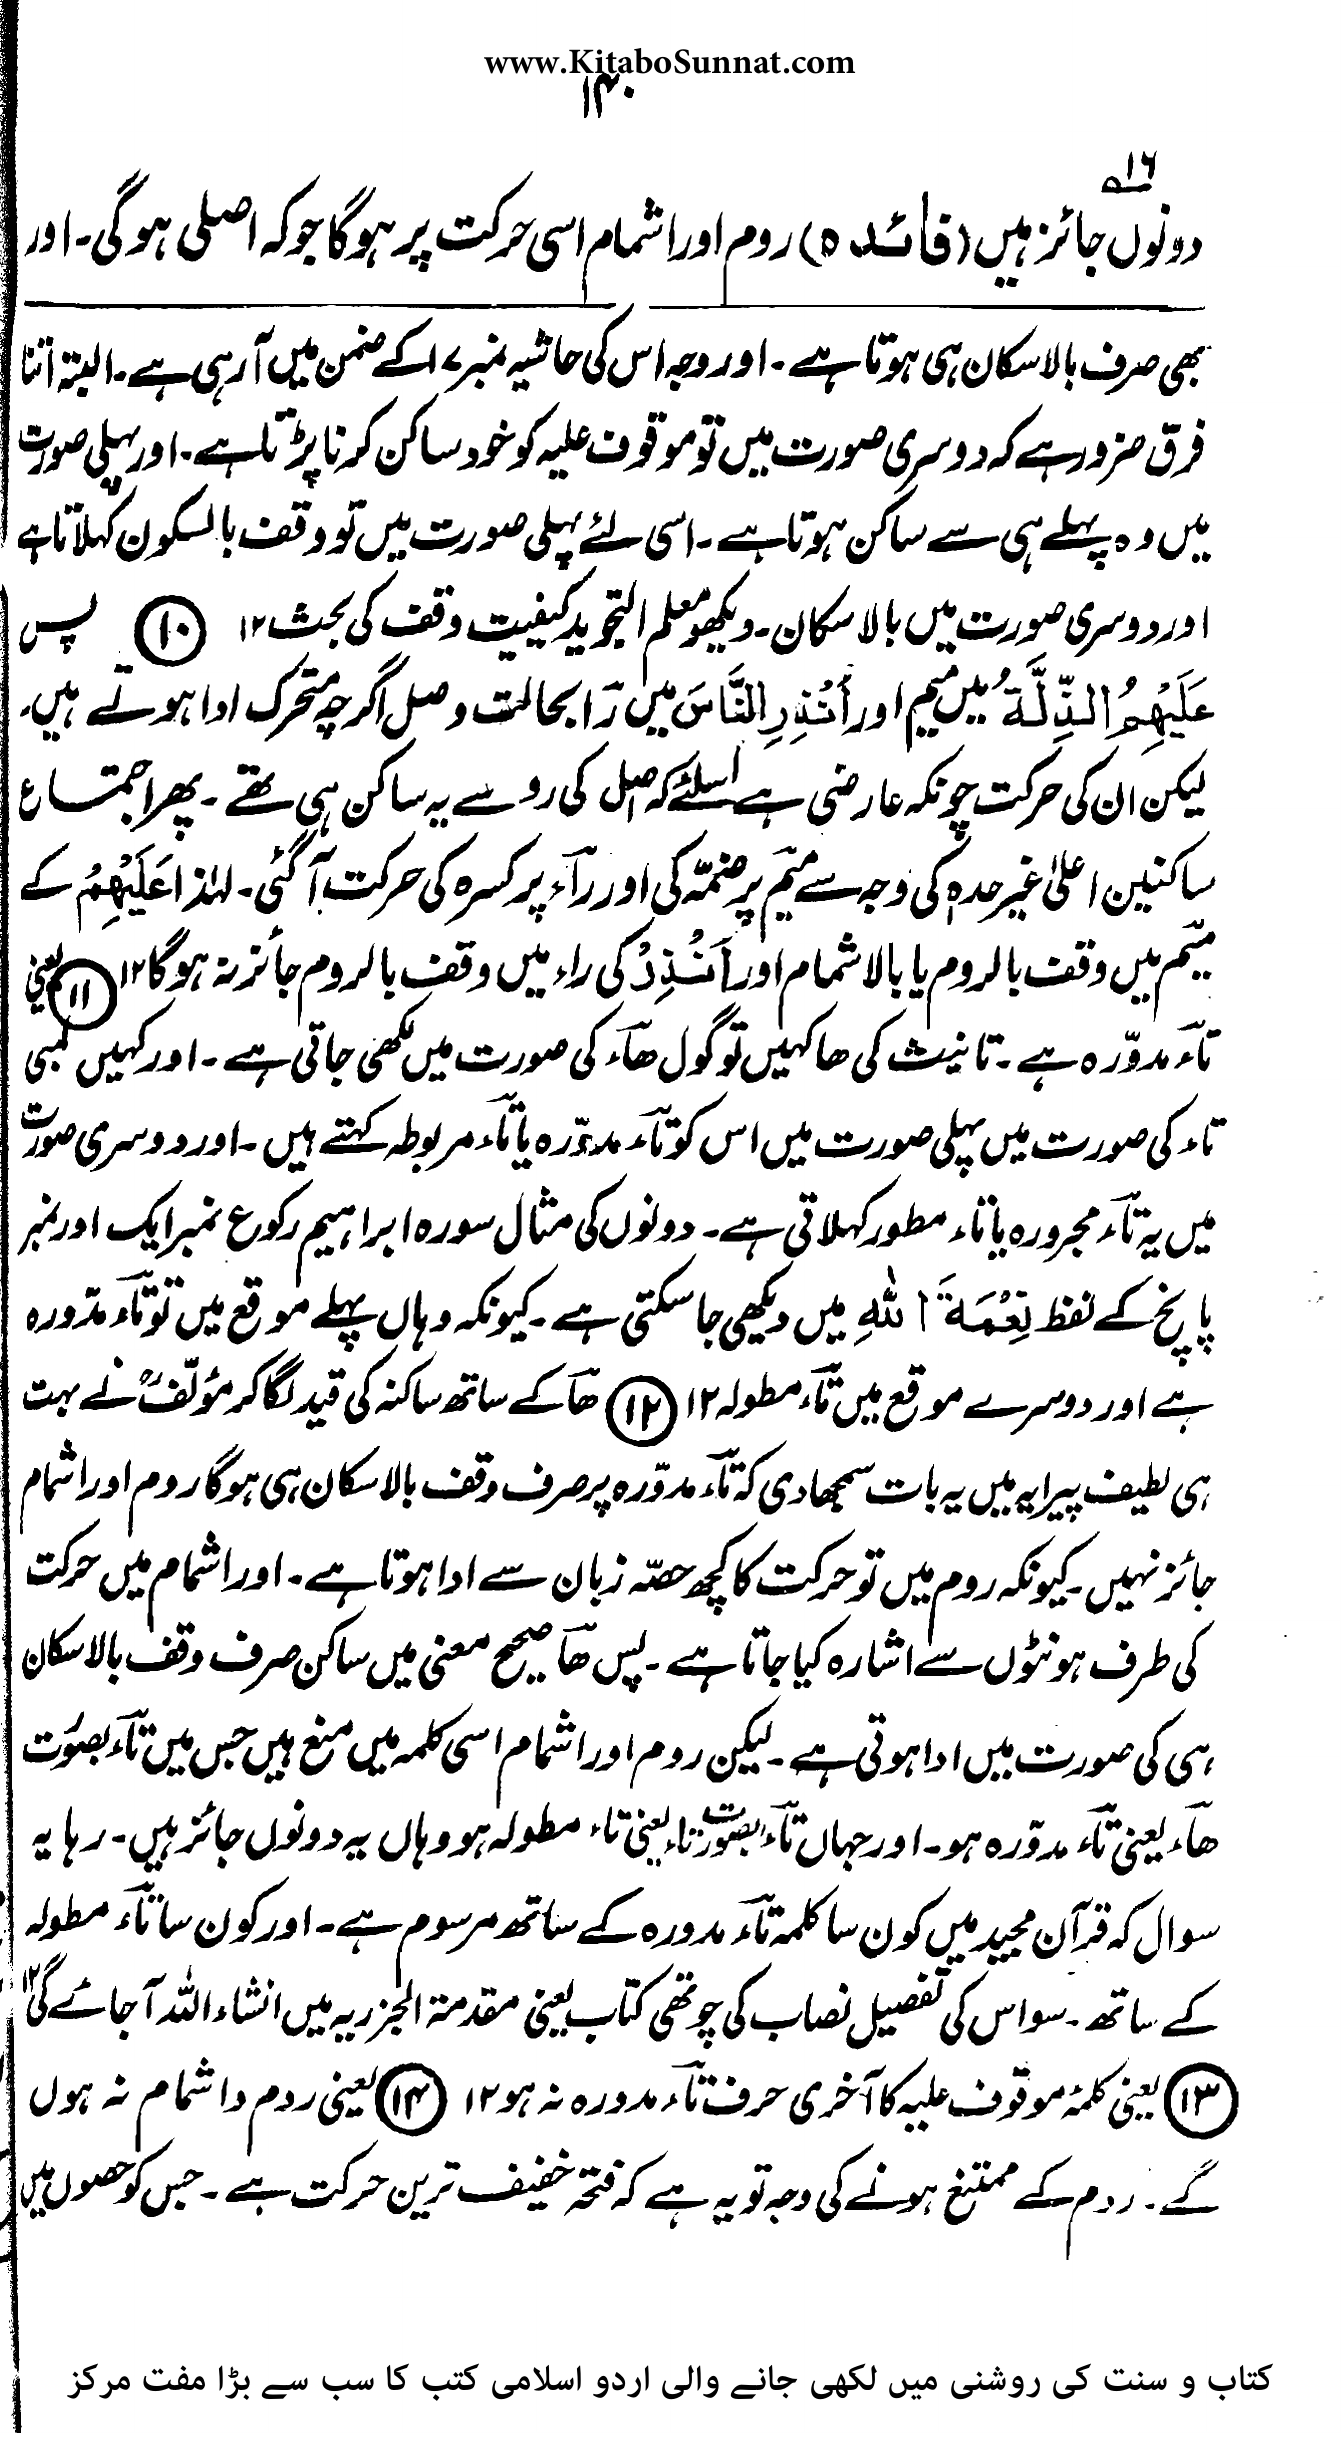 www.KitaboSunnat.com
۱۴۰
۱۶
دونوں جائز ہیں (فائدہ) روم اور اشمام اسی حرکت پر ہوگا جو کہ اصلی ہوگی۔ اور
بھی صرف بالاسکان ہی ہوتا ہے۔ اور وجہ اس کی حاشیہ نمبر ۱۷ کے ضمن میں آرہی ہے۔ البتہ اتنا
فرق ضرور ہے کہ دوسری صورت میں تو موقوف علیہ کو خود ساکن کرنا پڑتا ہے۔ اور پہلی صورت
میں وہ پہلے ہی سے ساکن ہوتا ہے۔ اسی لئے پہلی صورت میں تو وقف بالسکون کہلاتا ہے
اور دوسری صورت میں بالاسکان۔ دیکھو معلم التجوید کیفیت وقف کی بحث ۱۲ (۱۰) پس
عَلَيْهِمُ الذِّلَّةُ میں میم اور أَنْذِرِ النَّاسَ میں رَا بحالت وصل اگرچہ متحرک ادا ہوتے ہیں۔
لیکن ان کی حرکت چونکہ عارضی ہے اسلئے کہ اصل کی رو سے یہ ساکن ہی تھے۔ پھر اجتماع
ساکنین اعلیٰ غیر حدہٖ کی وجہ سے میم پر ضمّہ کی اور رآء پر کسرہ کی حرکت آگئی۔ لہٰذا عَلَيْهِمُ کے
میم میں وقف بالروم یا بالاشمام اور اَنْذِرْ کی راء میں وقف بالروم جائز نہ ہوگا ۱۲ (۱۱) یعنی
تآء مدوّرہ ہے۔ تانیث کی ھا کہیں تو گول ھآء کی صورت میں لکھی جاتی ہے۔ اور کہیں لمبی
تاء کی صورت میں پہلی صورت میں اس کو تآء مدوّرہ یا تآء مربوطہ کہتے ہیں۔ اور دوسری صورت
میں یہ تآء مجرورہ یا تاء مطور کہلاتی ہے۔ دونوں کی مثال سورہ ابراہیم رکوع نمبر ایک اور نمبر
پانچ کے لفظ نِعْمَةَ اللهِ میں دیکھی جاسکتی ہے۔ کیونکہ وہاں پہلے موقع میں تو تآء مدّورہ
ہے اور دوسرے موقع میں تآء مطولہ ۱۲ (۱۲) ھآ کے ساتھ ساکنہ کی قید لگا کر مؤلّفؒ نے بہت
ہی لطیف پیرایہ میں یہ بات سمجھا دی کہ تآء مدوّرہ پر صرف وقف بالاسکان ہی ہوگا روم اور اشمام
جائز نہیں۔ کیونکہ روم میں تو حرکت کا کچھ حصّہ زبان سے ادا ہوتا ہے۔ اور اشمام میں حرکت
کی طرف ہونٹوں سے اشارہ کیا جاتا ہے۔ پس ھآ صحیح معنی میں ساکن صرف وقف بالاسکان
ہی کی صورت میں ادا ہوتی ہے۔ لیکن روم اور اشمام اسی کلمہ میں منع ہیں جس میں تآء بصورت
ھآء یعنی تآء مدوّرہ ہو۔ اور جہاں تآء بصورت تاء یعنی تاء مطولہ ہو وہاں یہ دونوں جائز ہیں۔ رہا یہ
سوال کہ قرآن مجید میں کون سا کلمہ تآء مدورہ کے ساتھ مرسوم ہے۔ اور کون سا تآء مطولہ
کے ساتھ۔ سو اس کی تفصیل نصاب کی چوتھی کتاب یعنی مقدمۃ الجزریہ میں انشاء اللہ آجائے گی ۱۲
(۱۳) یعنی کلمۂ موقوف علیہ کا آخری حرف تآء مدورہ نہ ہو ۱۲ (۱۴) یعنی روم و اشمام نہ ہوں
گے۔ روم کے ممتنع ہونے کی وجہ تو یہ ہے کہ فتحہ خفیف ترین حرکت ہے۔ جس کو حصوں میں
کتاب و سنت کی روشنی میں لکھی جانے والی اردو اسلامی کتب کا سب سے بڑا مفت مرکز